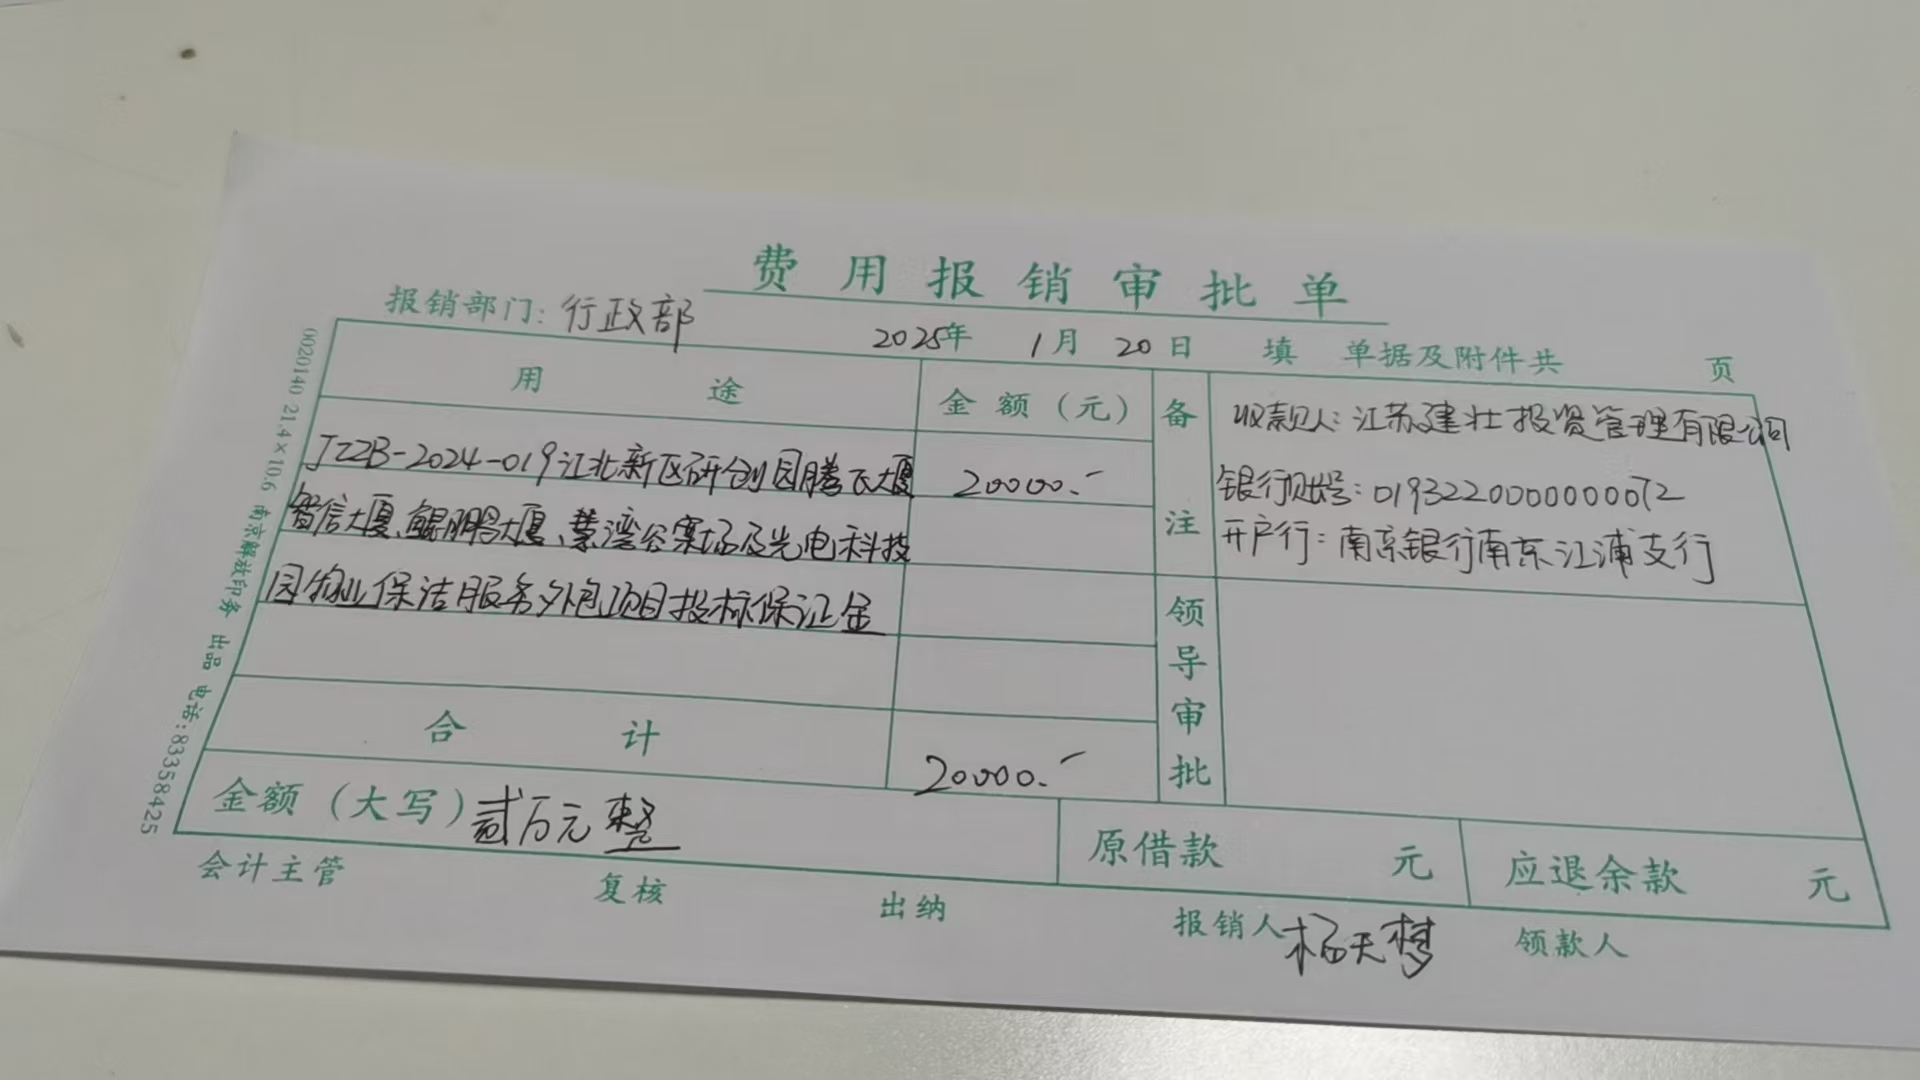 费用报销审批单
报销部门: 行政部
2025年 1月 20日 填 单据及附件共 页
用途 金额(元) 备注
JZZB-2024-019江北新区研创园腾飞大厦 20000.-
智信大厦、鲲鹏大厦、慧湾谷案场及光电科技
园物业保洁服务外包项目投标保证金
收款人: 江苏建壮投资管理有限公司
银行账号: 01932200000000072
开户行: 南京银行南京江浦支行
领导审批
合计 20000.-
金额(大写) 贰万元整 原借款 元 应退余款 元
会计主管 复核 出纳 报销人 杨天梦 领款人
0020140 21.4×10.6 南京解放印务 出品 电话:83358425